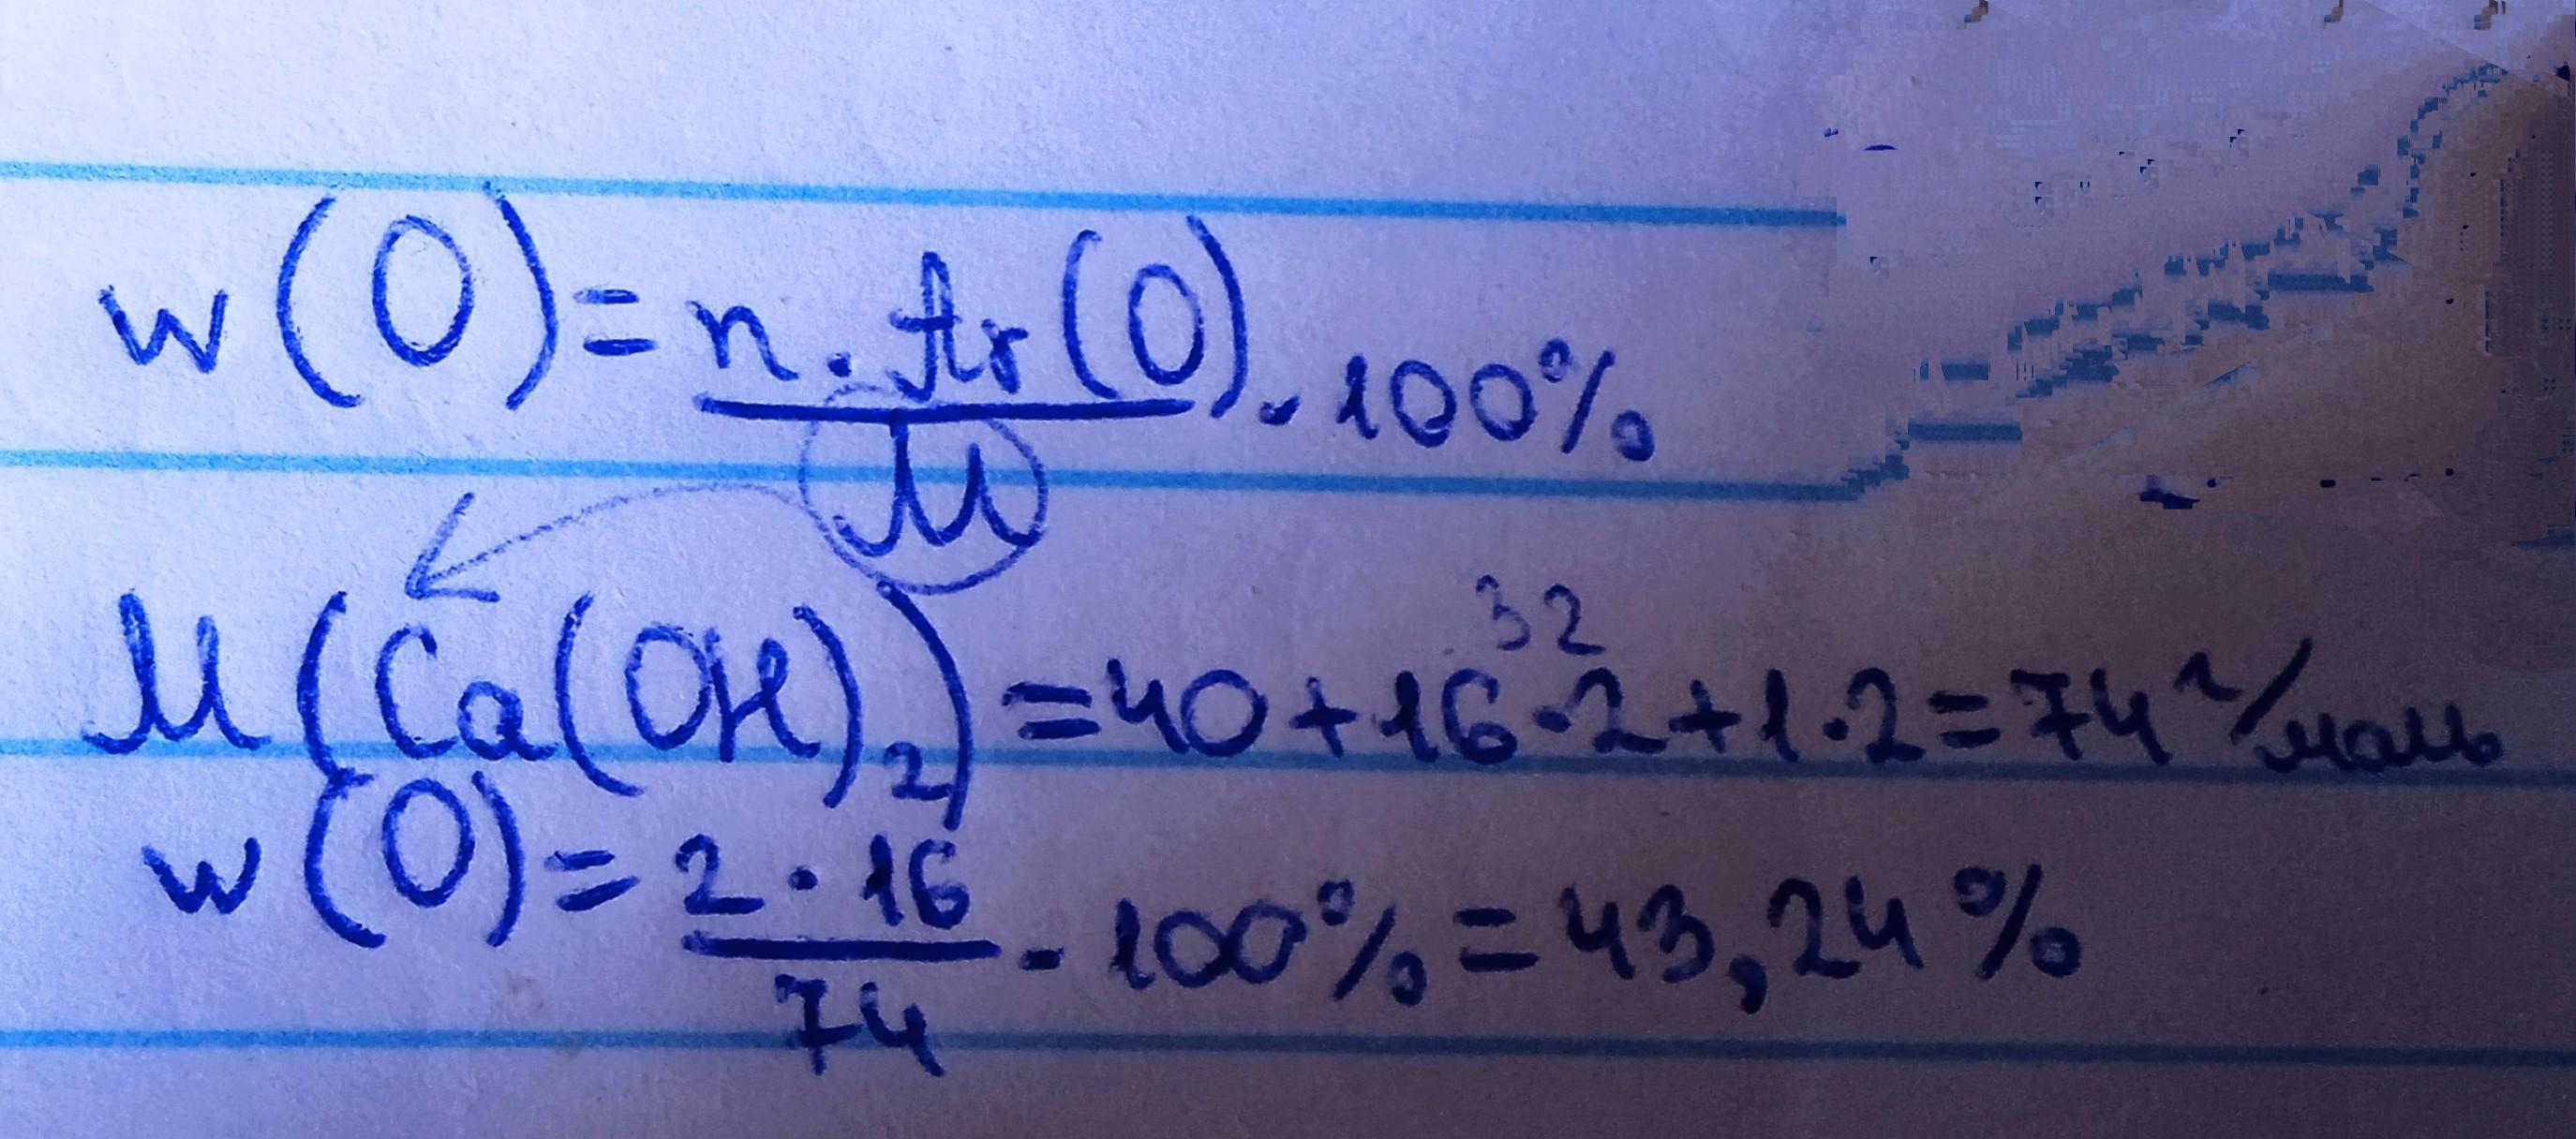 w(O) = n · Ar(O) / M · 100%
32
M(Ca(OH)₂) = 40 + 16 · 2 + 1 · 2 = 74 г/моль
w(O) = 2 · 16 / 74 · 100% = 43,24%